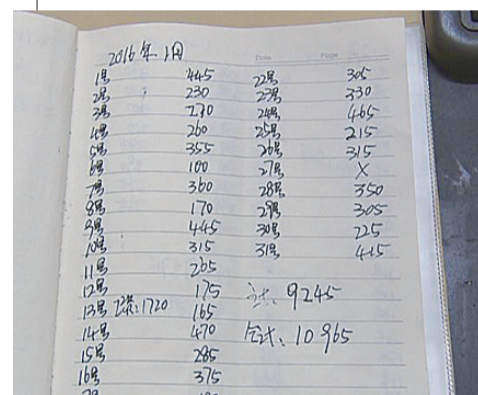 2016年1月
Date
Page
1号 445
2号 230
3号 270
4号 260
5号 355
6号 100
7号 360
8号 170
9号 445
10号 315
11号 265
12号 175
13号 1720 165
14号 470
15号 285
16号 375
22号 305
23号 330
24号 465
25号 215
26号 315
27号 X
28号 350
29号 305
30号 225
31号 415
计: 9245
合计: 10965